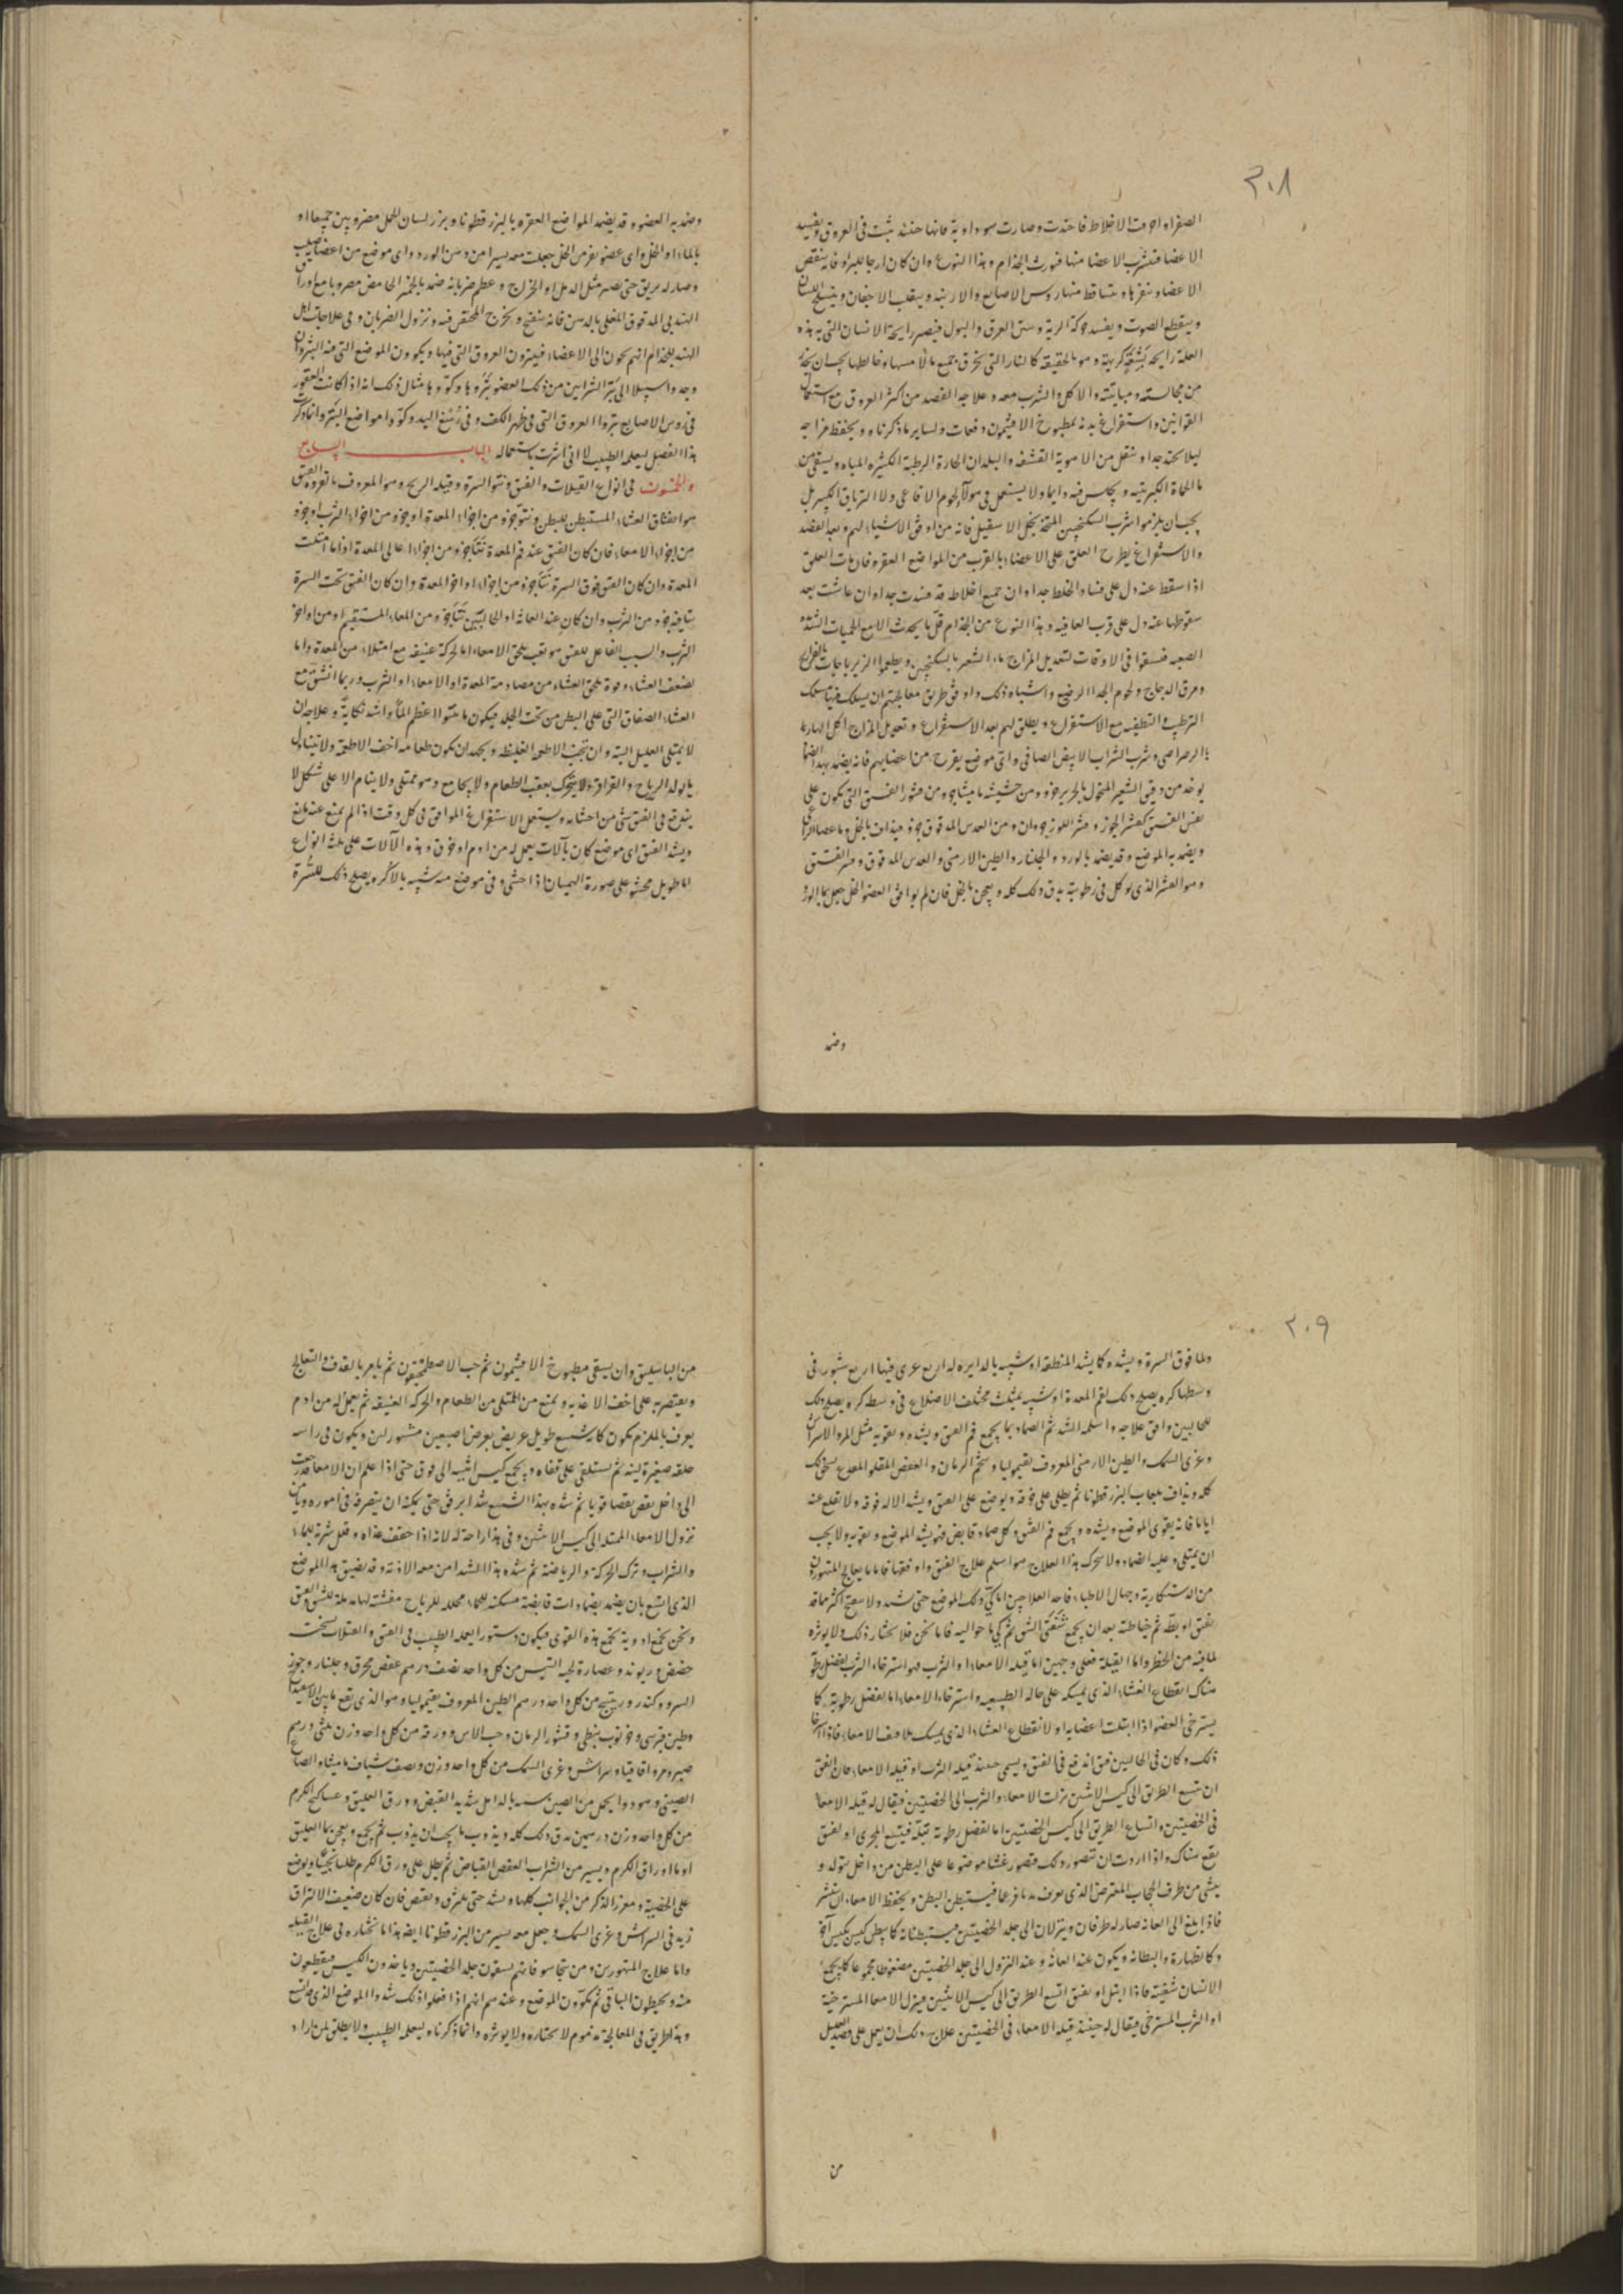 ٣٠٨
الصفراء احرقت الاخلاط فاحتدت وصارت سوداوية فانها حينئذ تثبت فى العروق وتفسد
الاعضا فتشرب الاعضا منها فيورث الجذام وهذا النوع وان كان ارجا للبرء فانه ينقص
الاعضا وينفرها ويتساقط منها روس الاصابع والارنبه وينقلب الاجفان
وينقطع الصوت ويفسد حركة الرية ومتن العرق والبول فيصير رايحة الانسان التى به هذه
العلة رايحه بشعة كريهة وهو بالحقيقة كالنار التى تحرق جميع ما لامسها وخالطها
من مجالسته ومبايتته والاكل والشرب معه وعلاجه الفصد من اكثر العروق مع استعمال
القوانين واستفراغ بدنه بمطبوخ الافيثمون دفعات ولساير ما ذكرناه ويحفظ مزاجه
ليلا يحتد جدا وينتقل من الاهوية القشفه والبلدان الحارة الرطبة الكثيره المياه ويستقى من
ما الحماة الكبريتيه ويجلس فيه دايما ولا يستعمل فى هولاء لحوم الافاعى ولا الترياق الكبير بل
يجب ان يلزموا شرب السكنجبين المتخذ بخل الاسقيل فانه من اوفق الاشياء لهم وبعد الفصد
والاستفراغ يطرح العلق على الاعضاء بالقرب من المواضع العقره فان مات العلق
اذا سقط عنه دل على فساد الخلط جدا وان جميع اخلاطه قد فسدت جدا وان عاشت بعد
سقوطها عنه دل على قرب العافية وهذا النوع من الجذام قل ما يحدث الا مع الحميات
الصعبه فيسقوا فى الاوقات لتعديل المزاج ماء الشعير بالسكنجبين ويطعموا الزيرباجات بالفراريج
ومرق الدجاج ولحوم الجدا الرضيع واشباه ذلك واوفق طريق معالجتهم ان يسلك فيها مسلك
الترطيب والتطفيه مع الاستفراغ ويطلق لهم بعد الاستفراغ وتعديل المزاج اكل
الرصراصى وشرب الشراب الابيض الصافى واى موضع يقرح من اعضايهم فانه يضمد بهذا الضماد
يوخذ من دقيق الشعير المنخول بالحرير جزو ومن حشيشه ماميثا جزو ومن قشور الفستق التى تكون على
نفس الفستق كقشر الجوز وقشر اللوز جزوان ومن العدس المدقوق جزو فيداف بالخل وماء عصا الراعى
ويضمد به الموضع وقد يضمد بالورد والجلنار والطين الارمنى والعدس المدقوق وقشر الفستق
وهو القشر الذى يوكل فى رطوبته يدق ذلك كله ويعجن بالخل فان لم يوافق العضو الخل جعل ما الورد
وضمد
وضمد به العضو وقد يضمد المواضع العقره بالبزر قطونا وبزر لسان الحمل مضروبين جميعا او
بالماء او الخل واى عضو نفر من الخل جعلت معه يسيرا من دهن الورد واى موضع من اعضا
وصار له بريق حتى يصير مثل الدمل او الخراج وعظم ضربانه ضمد بالخبز الحامض معه وبا مع اوراق
الهندبى المدقوق المغلى بالدهن فانه ينفتح ويخرج المحتقن فيه ويزول الضربان وفى علاجات اهل
الهند للجذام انهم يجون الى الاعضاء فيبترون العروق التى فيها ويكوون الموضع التى منه البثر وان
وجدوا سبيلا الى بتر الشرايين من ذلك العضو بتروها وكووها مثال ذلك انه اذا كانت العقور
فى روس الاصابع بتروا العروق التى فى ظهر الكف وفى رسغ اليد وكووا مواضع البتر وانما ذكرنا
هذا الفصل ليعلمه الطبيب لا انى اشرت باستعماله الباب السابع
والخمسون فى انواع القيلات والفتق ونتو السرة وقيله الريح وهو المعروف بالقروة الفتق
هو انفتاق الغشاء المستبطن للبطن ونتو جزو من اجزاء المعدة او جزو من اجزاء الثرب او جزو
من اجزاء الامعاء فان كان الفتق عند فم المعدة نتا جزو من اجزاء اعالى المعدة اذا ما امتلت
المعدة وان كان الفتق فوق السرة نتا جزو من اجزاء اواخر المعدة وان كان الفتق تحت السرة
نتا فيه جزو من الثرب وان كان عند العانة او الحالبين نتا جزو من المعاء المستقيم او من اواخر
الثرب والسبب الفاعل للفتق هو تعب يلحق الامعاء اما لحركة عنيفة مع امتلاء من المعدة واما
لضعف الغشاء وقوة تلحق الغشاء من مصادمة المعدة او الامعاء او الثرب وربما انشق مع
الغشاء الصفاق التى على البطن من تحت الجلد فيكون ما نتوا اعظم الما واشد نكاية وعلاجه ان
لا يمتلى العليل البتة وان تجنب الاطعمه الغليظه ويجهد ان يكون طعامه اخف الاطعمة ولا يتناول
ما يولد الرياح والقراقر ولا يتحرك بعقب الطعام ولا يجامع وهو ممتلى ولا ينام الا على شكل لا
يندفع فى الفتق شى من احشايه ويستعمل الاستفراغ الموافق فى كل وقت اذا لم يمنع عنه مانع
ويشد الفتق اى موضع كان بآلات يعمل له من ادم او خرق وهذه الآلات على ثلثه انواع
اما طويل محشو على صورة الهميان اذا حشى وفى موضع منه شبيه بالاكره ويصلح ذلك للسرة
٣٠٩
ولما فوق السرة ويشده كما يشد المنطقة او شبيه بالدايره له اربع عرى فيها اربع شبور فى
وسطها كره يصلح ذلك لفم المعدة او شبيه بمثلث مختلف الاضلاع فى وسطه كره يصلح ذلك
للحالبين وافق علاجه واسلمه الشد ثم الضماد بما يجمع فم الفتق ويشده ويقويه مثل المر والاسراش
وغرى السمك والطين الارمنى المعروف بقيموليا وشحم الرمان والعفص المقلو
كله ويداف بلعاب البزر قطونا ثم يطلى على خرقه ويوضع على الفتق ويشد الاله فوقه ولا يقلع عنه
اياما فانه يقوى الموضع ويشده ويجمع فم الفتق وكل ضماد قابض فهو يشد الموضع ويقويه ولا يجب
ان يمتلى وعليه الضماد ولا يتحرك هذا العلاج هو اسلم علاج الفتق واوفقها فاما ما يعالج المتهورون
من الدستكارية وجهال الاطباء فاحد العلاجين اما كى ذلك الموضع حتى يشد ولا يسفتح اكثر مما قد
يفتق او بطه ثم خياطته بعد ان يجمع شفتى الشق ثم كى ما حواليه فاما نحن فلا نختار ذلك ولا يوثره
لما فيه من الخطر واما القيلة فعلى وجهين اما قيله الامعاء او الثرب فهو استرخاء الثرب لفضل رطوبة
هناك انقطاع الغشاء الذى يمسكه على حاله الطبيعيه واسترخاء الامعاء اما لفضل رطوبة كما
يسترخى العضو اذا ابتلت اعضايه او لانقطاع الغشاء الذى يمسك تلافيف الامعاء فاذا
ذلك وكان فى الحالبين فتق اندفع فى الفتق ويسمى حينئذ قيله الثرب او قيله الامعاء فان اتفق
ان يتسع الطريق الى كيس الانثيين نزلت الامعاء والثرب الى الخصيتين فيقال له قيله الامعاء
فى الخصيتين واتساع الطريق الى كيس الخصيتين اما لفضل رطوبة تبله فيتسع المجرى او لفتق
يقع هناك واذا اردت ان تتصور ذلك فتصور غشا موضوعا على البطن من داخل متولد و
ينشى من طرف الحجاب المعترض الذى يعرف بديافرغما فيستبطن البطن ويحفظ الامعاء
فاذا بلغ الى العانة صار له طرفان وينزلان الى جلد الخصيتين فيستبطنانه كما يبطن كيس بكيس آخر
وكالظهارة والبطانة ويكون عند العانة وعند النزول الى جلد الخصيتين مضغوطا مجموعا كما يجمع
الانسان شفتيه فاذا ابتل او يفتق اتسع الطريق الى كيس الانثيين فينزل الامعا المسترخية
او الثرب المسترخى فيقال له حينئذ قيله الامعاء فى الخصيتين علاج ذلك ان يعمل على فصد العليل
من
من الباسليق وان يسقى مطبوخ الافيثمون ثم حب الاصطمخيقون ثم يامر بالقذف والتعالج
ويقتصر به على اخف الاغذيه ويمنع من الممتلى من الطعام والحركه العنيفه ثم يعمل له من ادم
يعرف بالملزم يكون كالشسع طويل عريض بعرض اصبعين مشبورين ويكون فى راسه
حلقه صغيرة لينه ثم يستلقى على قفاه ويجمع كيس انثييه الى فوق حتى اذا علم ان الامعا قد رجعت
الى داخل يقبض قبضا قويا ثم شده بهذا الشسع شدا برفق حتى يمكنه ان يتصرف فى اموره ويامن
نزول الامعاء الممتده الى كيس الانثيين وفى هذا راحة له لانه اذا خفف غذاه وقلل شربه للماء
والشراب وترك الحركة والرياضة ثم شده هذا الشد امن معه الاذية وقد يضيق هذا الموضع
الذى اتسع بان يضمد بضمادات قابضة مسكنه للحماء محلله للرياح مفششه لها مدملة للشق والفتق
ونحن نجمع ادوية تجمع هذه القوى فيكون دستورا يعلمه الطبيب فى الفتق والقيلات نسخته
حضض وريوند وعصارة لحية التيس من كل واحد نصف درهم عفص محرق وجلنار وجوز
السرو وكندر وريتينج من كل واحد درهم الطين المعروف بقيموليا وهو الذى يقع ما بين
وطين قبرسى وخرنوب نبطى وقشور الرمان وحب الاس وورقه من كل واحد وزن ثلثى درهم
صبر ومر واقاقيا وسراش وغرى السمك من كل واحد وزن ونصف شياف ماميثا
الصينى وهو دوا يحمل من الصين شديد القبض وورق العليق وعساليج الكرم
من كل واحد وزن درهمين يدق ذلك كله ويذوب ما يجب ان يذوب ثم يجمع ويعجن بما العليق
او ماء اوراق الكرم ويسير من الشراب العفص القباض ثم يطلى على ورق الكرم طليا ثخينا ويوضع
على الخصية ومغرز الذكر من الجوانب كلها ويشد حتى يلتزق ويقبض فان كان ضعيف الالتزاق
زيد فى السراش وغرى السمك وجعل معه يسير من البزر قطونا ايضا هذا ما نختاره فى علاج القيله
واما علاج المتهورين ومن يتجاسر فانهم يشقون جلد الخصيتين وياخذون الكيس فيقطعون
منه ويخيطون الباقى ثم يكوون الموضع وعندهم انهم اذا فعلوا ذلك شدوا الموضع الذى اتسع
وهذا طريق فى المعالجة مذموم لا نختاره ولا نوثره وانما ذكرناه ليعلمه الطبيب ولا يطلق لمن اراد